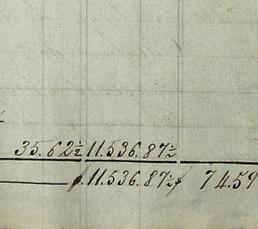 35.62½ 11.536.87½
$ 11.536.87½ $ 74.59